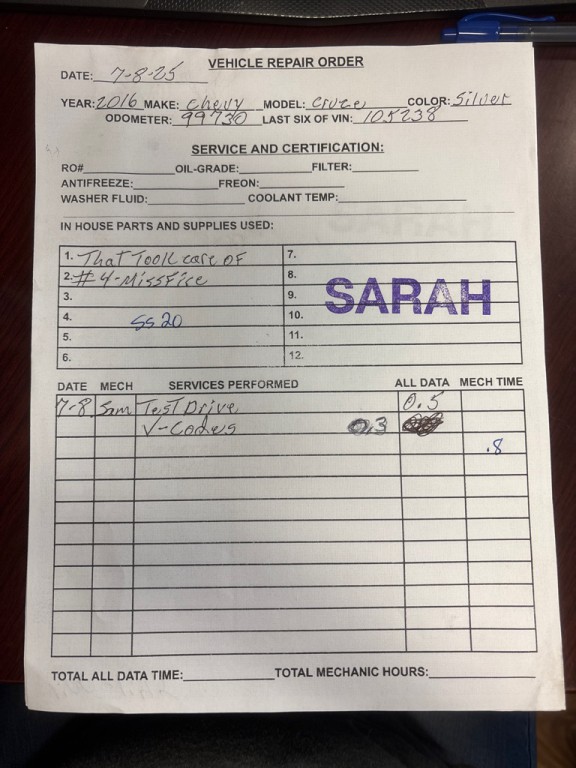 VEHICLE REPAIR ORDER
DATE: 7-8-25
YEAR: 2016 MAKE: Chevy MODEL: Cruze COLOR: Silver
ODOMETER: 99730 LAST SIX OF VIN: 105238
SERVICE AND CERTIFICATION:
RO# OIL-GRADE: FILTER:
ANTIFREEZE: FREON:
WASHER FLUID: COOLANT TEMP:
IN HOUSE PARTS AND SUPPLIES USED:
1. That Took care of 7.
2. #4-Missfire 8.
3. 9.
SARAH
4. SS20 10.
5. 11.
6. 12.
DATE MECH SERVICES PERFORMED ALL DATA MECH TIME
7-8 Sam Test Drive 0.5
V-Codes 0.3
.8
TOTAL ALL DATA TIME: TOTAL MECHANIC HOURS: